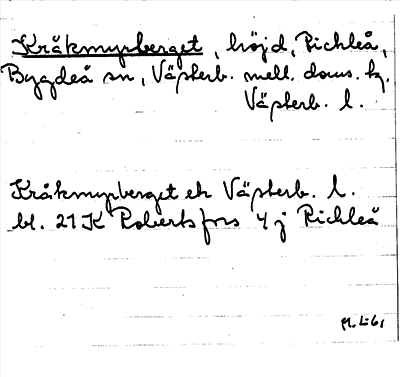 Kråkmyrberget, höjd, Richleå,
Bygdeå sn, Västerb. mell. doms. hg.
Västerb. l.
Kråkmyrberget ek Västerb. l.
bl. 21K Robertsfors 4 j Richleå